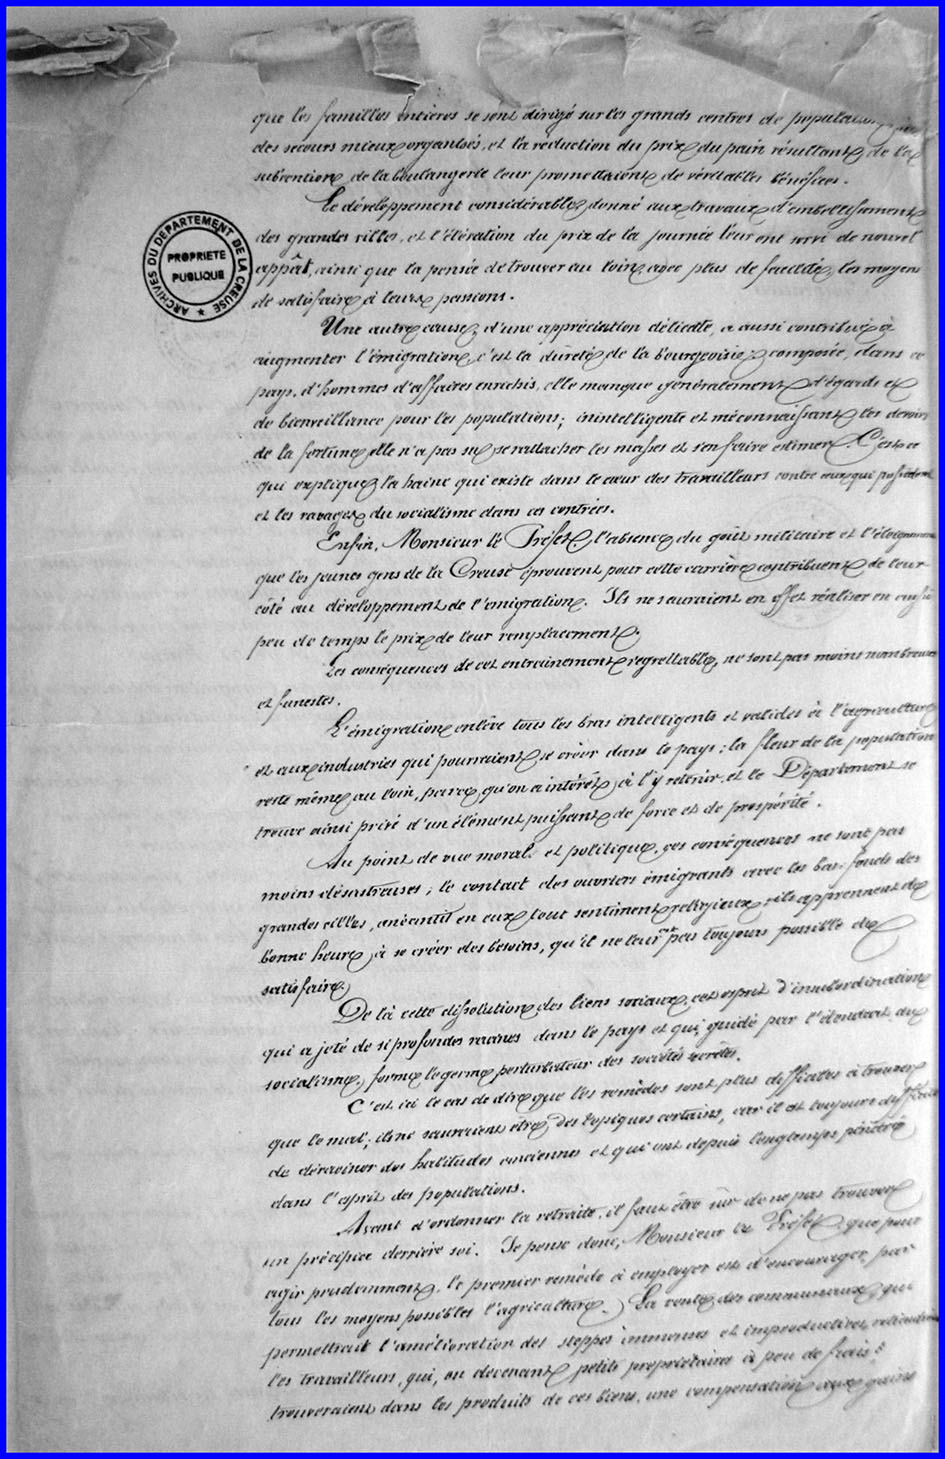 que les familles entières se sont dirigé sur les grands centres de population
des secours mieux organisés, et la réduction du prix du pain résultant de la
subvention de la boulangerie leur promettaient de véritables bénéfices.
Le développement considérable donné aux travaux d'embellissement
des grandes villes, et l'élévation du prix de la journée leur ont servi de nouvel
appât, ainsi que la pensée de trouver au loin avec plus de facilité, les moyens
de satisfaire à leurs passions.
ARCHIVES DU DEPARTEMENT DE LA CREUSE
PROPRIETE
PUBLIQUE
Une autre cause, d'une appréciation délicate, a aussi contribué à
augmenter l'émigration, c'est la dureté de la bourgeoisie; composée, dans ce
pays, d'hommes d'affaires enrichis, elle manque généralement d'égards et
de bienveillance pour les populations; inintelligente et méconnaissant les devoirs
de la fortune, elle n'a pas su se rattacher les masses et s'en faire estimer. C'est ce
qui explique la haine qui existe dans le cœur des travailleurs contre ceux qui possèdent
et les ravages du socialisme dans ces contrées.
Enfin, Monsieur le Préfet, l'absence du goût militaire et l'éloignement
que les jeunes gens de la Creuse éprouvent pour cette carrière contribuent de leur
côté au développement de l'émigration. Ils ne sauraient en effet réaliser en aussi
peu de temps le prix de leur remplacement.
Les conséquences de cet entrainement regrettable, ne sont pas moins nombreuses
et funestes.
L'émigration enlève tous les bras intelligents et valides à l'agriculture
et aux industries qui pourraient se créer dans le pays; la fleur de la population
reste même au loin, parce qu'on a intérêt à l'y retenir, et le Département se
trouve ainsi privé d'un élément puissant de force et de prospérité.
Au point de vue moral et politique, ces conséquences ne sont pas
moins désastreuses; le contact des ouvriers émigrants avec les bas-fonds des
grandes villes, anéantit en eux tout sentiment religieux, ils apprennent de
bonne heure à se créer des besoins, qu'il ne leur est pas toujours possible de
satisfaire.
De là cette dissolution des liens sociaux, cet esprit d'insubordination
qui a jeté de si profondes racines dans le pays et qui, guidé par l'étendart du
socialisme, forme le germe perturbateur des sociétés secrètes.
C'est ici le cas de dire que les remèdes sont plus difficiles à trouver
que le mal; ils ne sauraient être, des topiques certains, car il est toujours difficile
de déraciner des habitudes anciennes et qui ont depuis longtemps pénétré
dans l'esprit des populations.
Avant d'ordonner la retraite, il faut être sûr de ne pas trouver
un précipice derrière soi. Je pense donc, Monsieur le Préfet, que pour
agir prudemment, le premier remède à employer est d'encourager, par
tous les moyens possibles l'agriculture. La vente des communaux, qui
permettrait l'amélioration des steppes immenses et improductives,
les travailleurs, qui, en devenant petits propriétaires à peu de frais,
trouveraient dans les produits de ces biens, une compensation aux gains